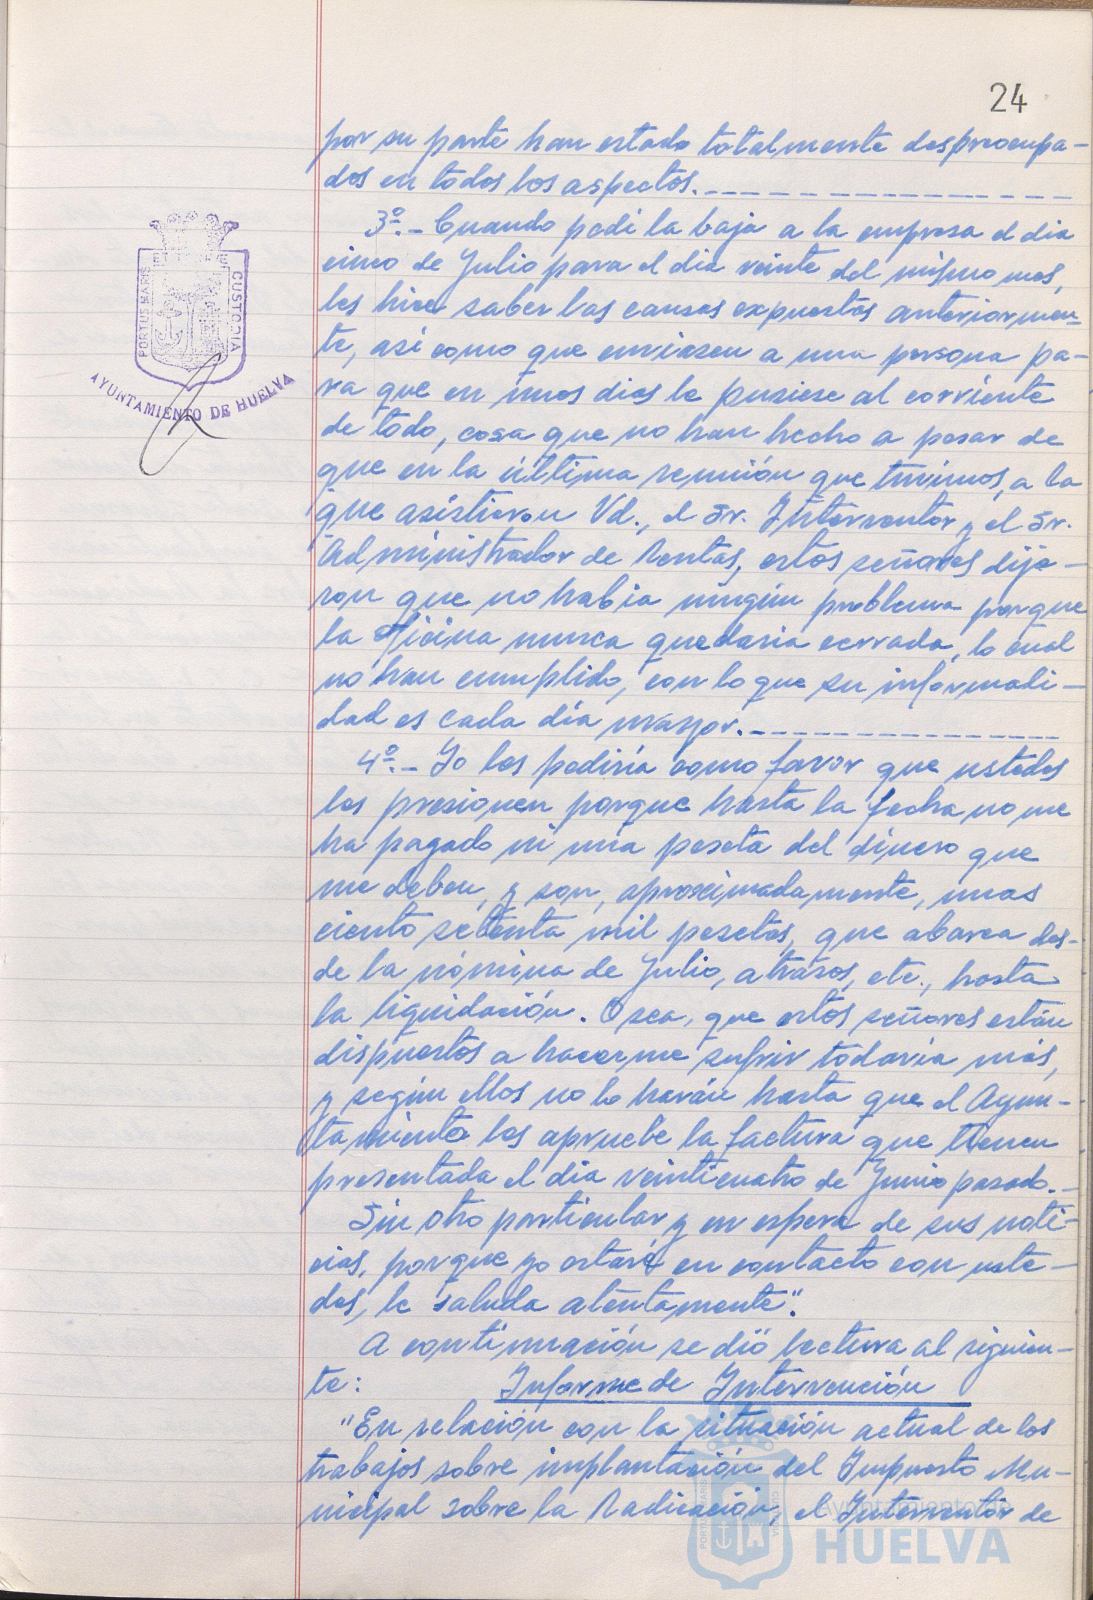 24
por su parte han estado totalmente despreocupa-
dos en todos los aspectos.
3º.- Cuando pedí la baja a la empresa el dia
cinco de Julio para el dia veinte del mismo mes,
les hice saber las causas expuestas anteriormen-
te, asi como que enviasen a una persona pa-
ra que en unos dias le pusiese al corriente
de todo, cosa que no han hecho a pesar de
que en la última reunión que tuvimos, a la
que asistieron Vd., el Sr. Interventor y el Sr.
Administrador de Rentas, estos señores dije-
ron que no habia ningún problema porque
la oficina nunca quedaria cerrada, lo cual
no han cumplido, con lo que su informali-
dad es cada día mayor.
4º.- Yo les pediría como favor que ustedes
les presionen porque hasta la fecha no me
ha pagado ni una peseta del dinero que
me deben, y son, aproximadamente, unas
ciento setenta mil pesetas, que abarca des-
de la nómina de Julio, atrasos, etc., hasta
la liquidación. O sea, que estos señores están
dispuestos a hacerme sufrir todavía más,
y según ellos no lo harán hasta que el Ayun-
tamiento les apruebe la factura que tienen
presentada el dia veinticuatro de Junio pasado.-
Sin otro particular y en espera de sus noti-
cias, porque yo estaré en contacto con uste-
des, le saluda atentamente".
A continuación se dió lectura al siguien-
te: Informe de Intervención
"En relación con la situación actual de los
trabajos sobre implantación del Impuesto Mu-
nicipal sobre la Radicación, el Interventor de
PORTUS MARIS
CUSTODIA
AYUNTAMIENTO DE HUELVA
Ayuntamiento de
HUELVA